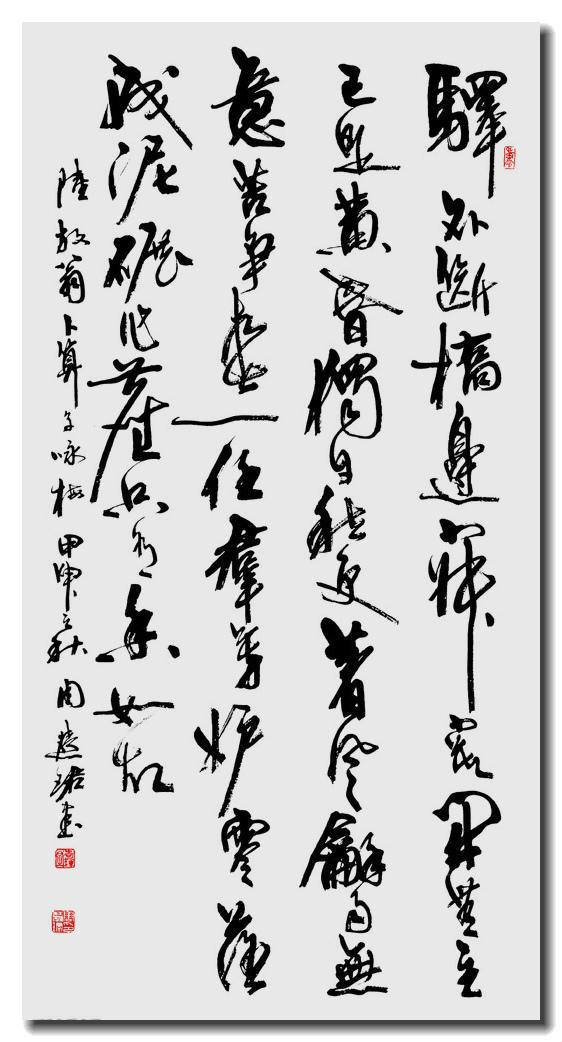 驛外斷橋邊寂寞開無主
已是黃昏獨自愁更著風龢雨無
意苦爭春一任羣芳妒零落
成泥碾作塵只有香如故
陸放翁卜算子咏梅甲申之秋周慧珺書